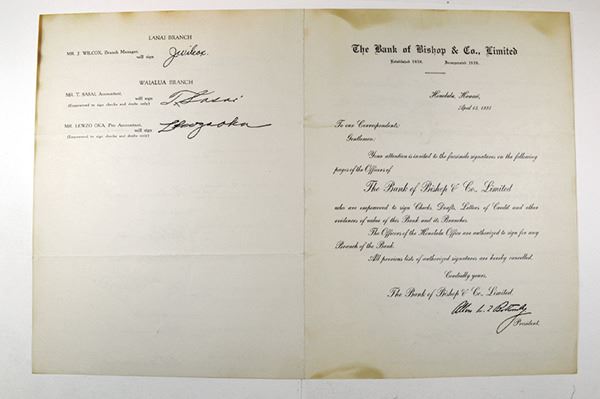 LANAI BRANCH
MR. J. WILCOX, Branch Manager,
will sign
J Wilcox.
WAIALUA BRANCH
MR. T. SASAI, Accountant,
will sign
(Empowered to sign checks and drafts only)
T. Sasai
MR. LEWZO OKA, Pro Accountant,
will sign
(Empowered to sign checks and drafts only)
Lewzo Oka
The Bank of Bishop & Co., Limited
Established 1858. Incorporated 1919.
Honolulu, Hawaii,
April 15, 192
To our Correspondents:
Gentlemen:
Your attention is invited to the facsimile signatures on the following
pages of the Officers of
The Bank of Bishop & Co., Limited
who are empowered to sign Checks, Drafts, Letters of Credit and other
evidences of value of this Bank and its Branches.
The Officers of the Honolulu Office are authorized to sign for any
Branch of the Bank.
All previous lists of authorized signatures are hereby cancelled.
Cordially yours,
The Bank of Bishop & Co., Limited.
President.